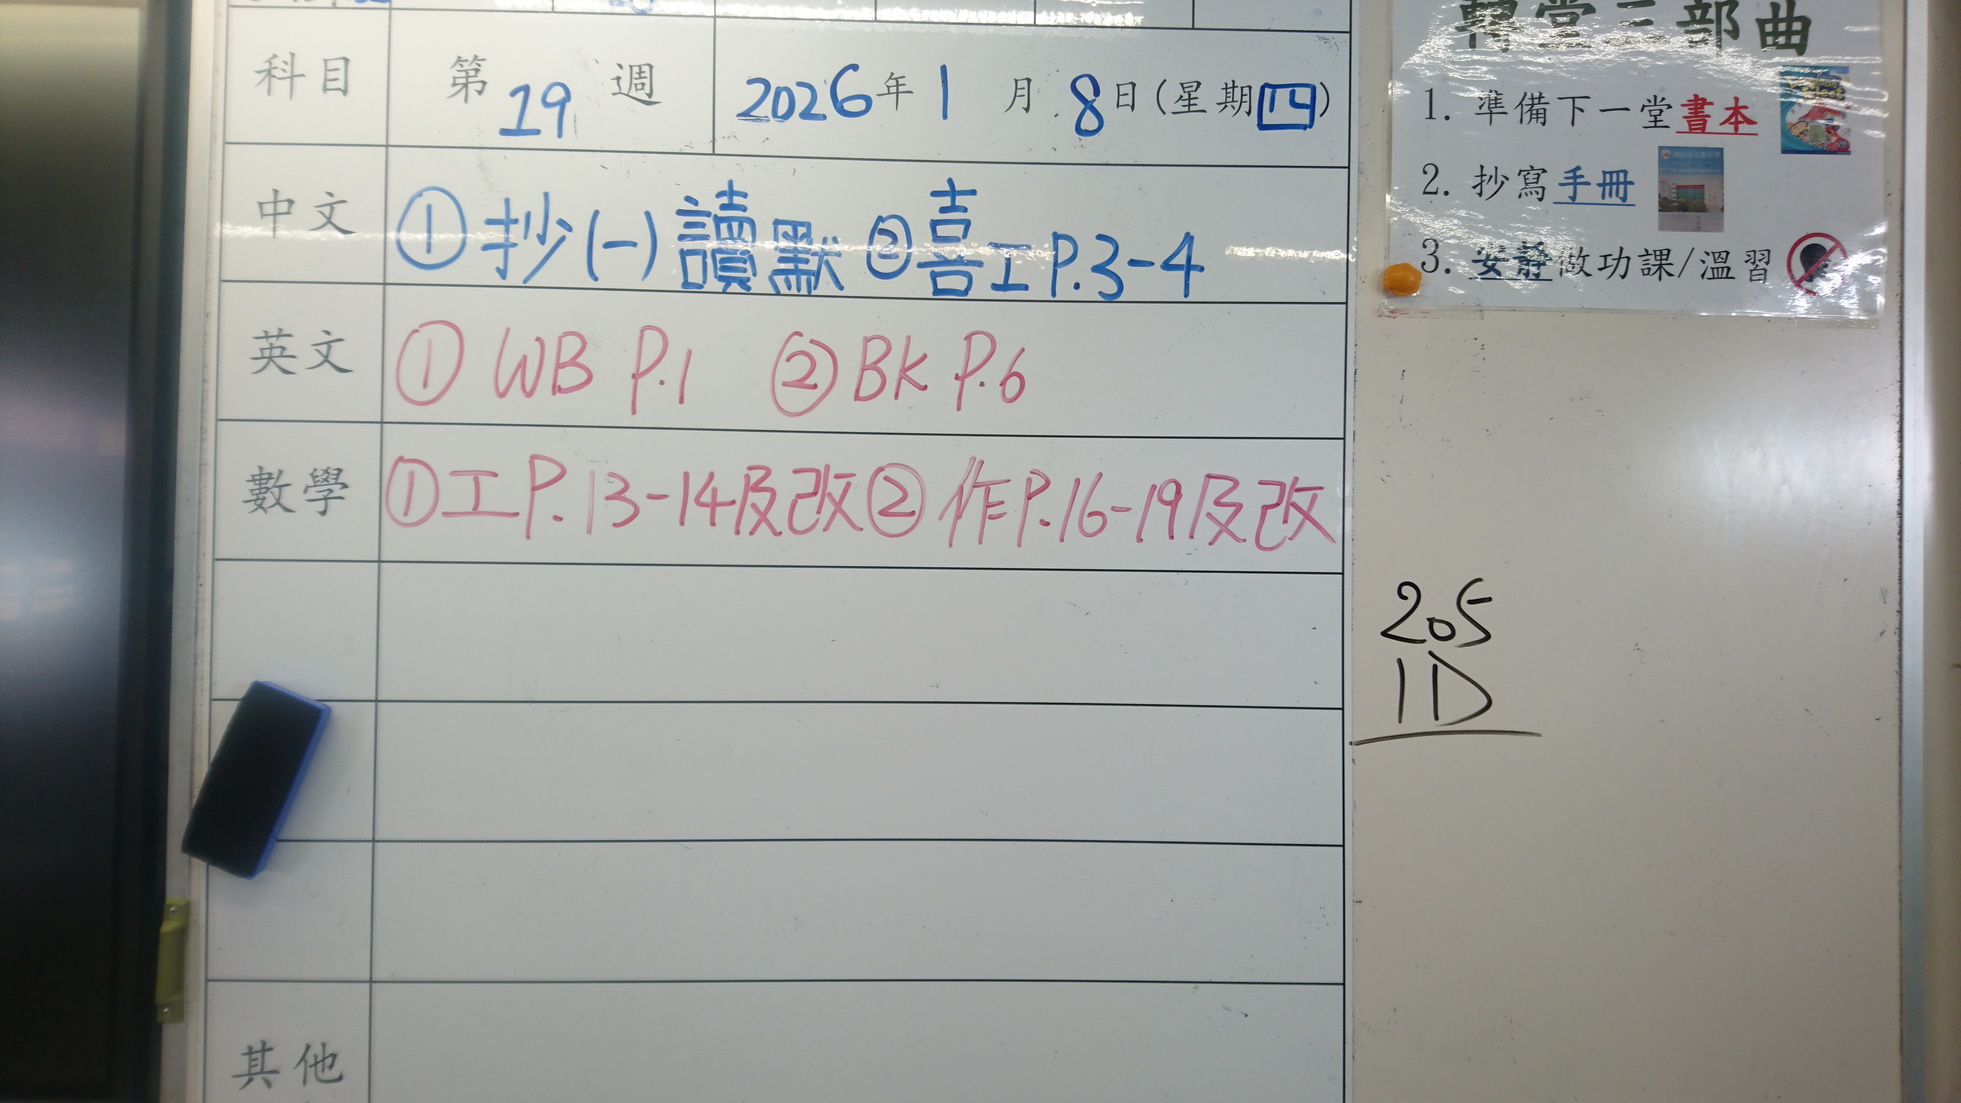 科目 第19週 2026年1月8日(星期四)
中文 ①抄(一)讀默 ②喜工P.3-4
英文 ① WB P.1 ② BK P.6
數學 ①工P.13-14及改② 作P.16-19及改
其他
轉堂三部曲
1. 準備下一堂書本
2. 抄寫手冊
3. 安靜做功課/溫習
205
1D